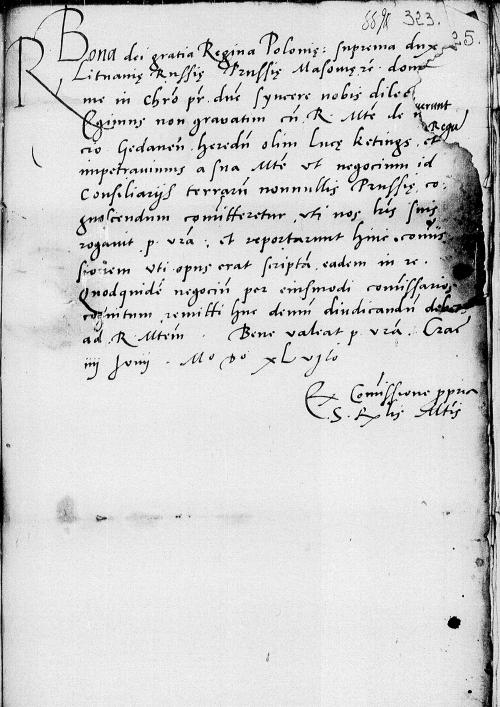 323.
25.
R
Bona dei gratia Regina Polonię: suprema dux
Lituanię Russię Prussię Masovię rē. dom
me in Chrō pr̄. dnē syncere nobis dilec
Egimus non gravatim cū R. Mte de n
verunt
cio Gedaneñ. heredū olim Lucę Ketings. et
Regia
impetravimus a sua Mte ut negocium id
Consiliarijs terrarū nonnullis Prussię, co
gnoscendum comitteretur, uti nos, lris suis
rogavit p. vrā: et reportarunt hinc comis
sionem uti opus erat scriptā eadem in re.
Quodquidē negociū per eiusmodi comissarios
cognitum remitti huc demū diudicandū debet
ad R. Mtem. Bene valeat p. vrā. Crac
iiij Junij. Mo Do xLvijo
Ex Comissione ppria
S. Rglis Mtis